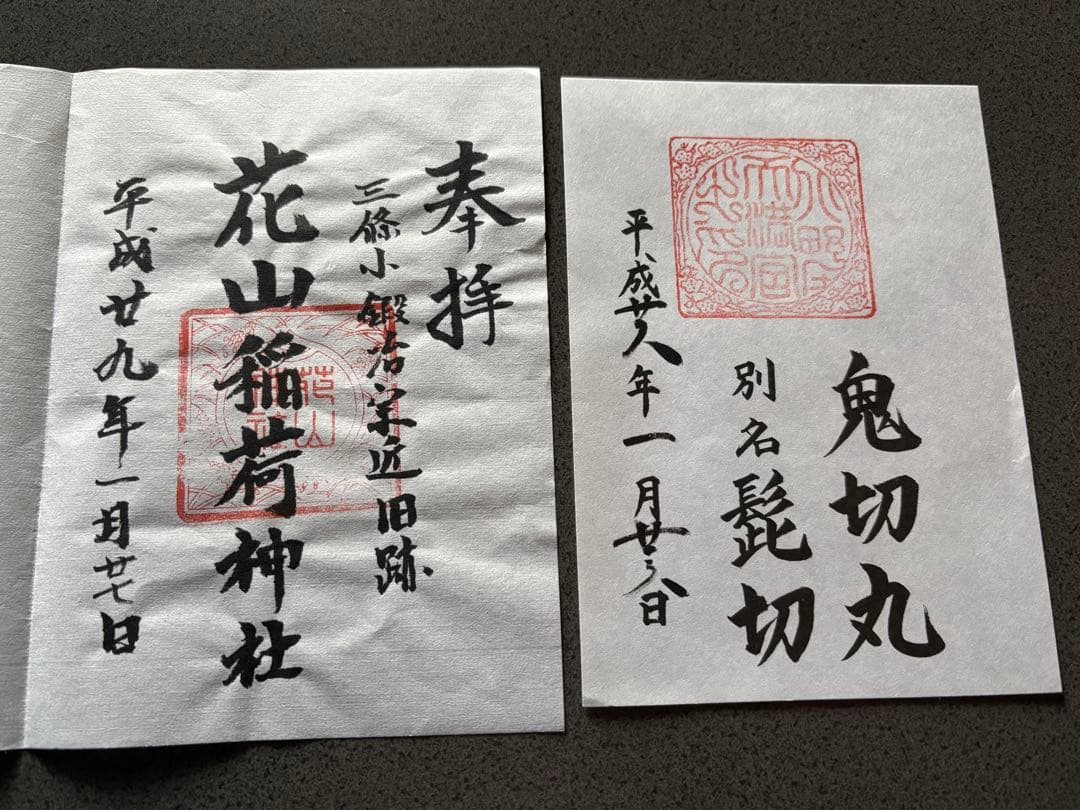 鬼切丸
別名髭切
平成廿年一月廿日
奉拝
三條小鍛冶宗近旧跡
花山稲荷神社
平成廿九年一月廿七日